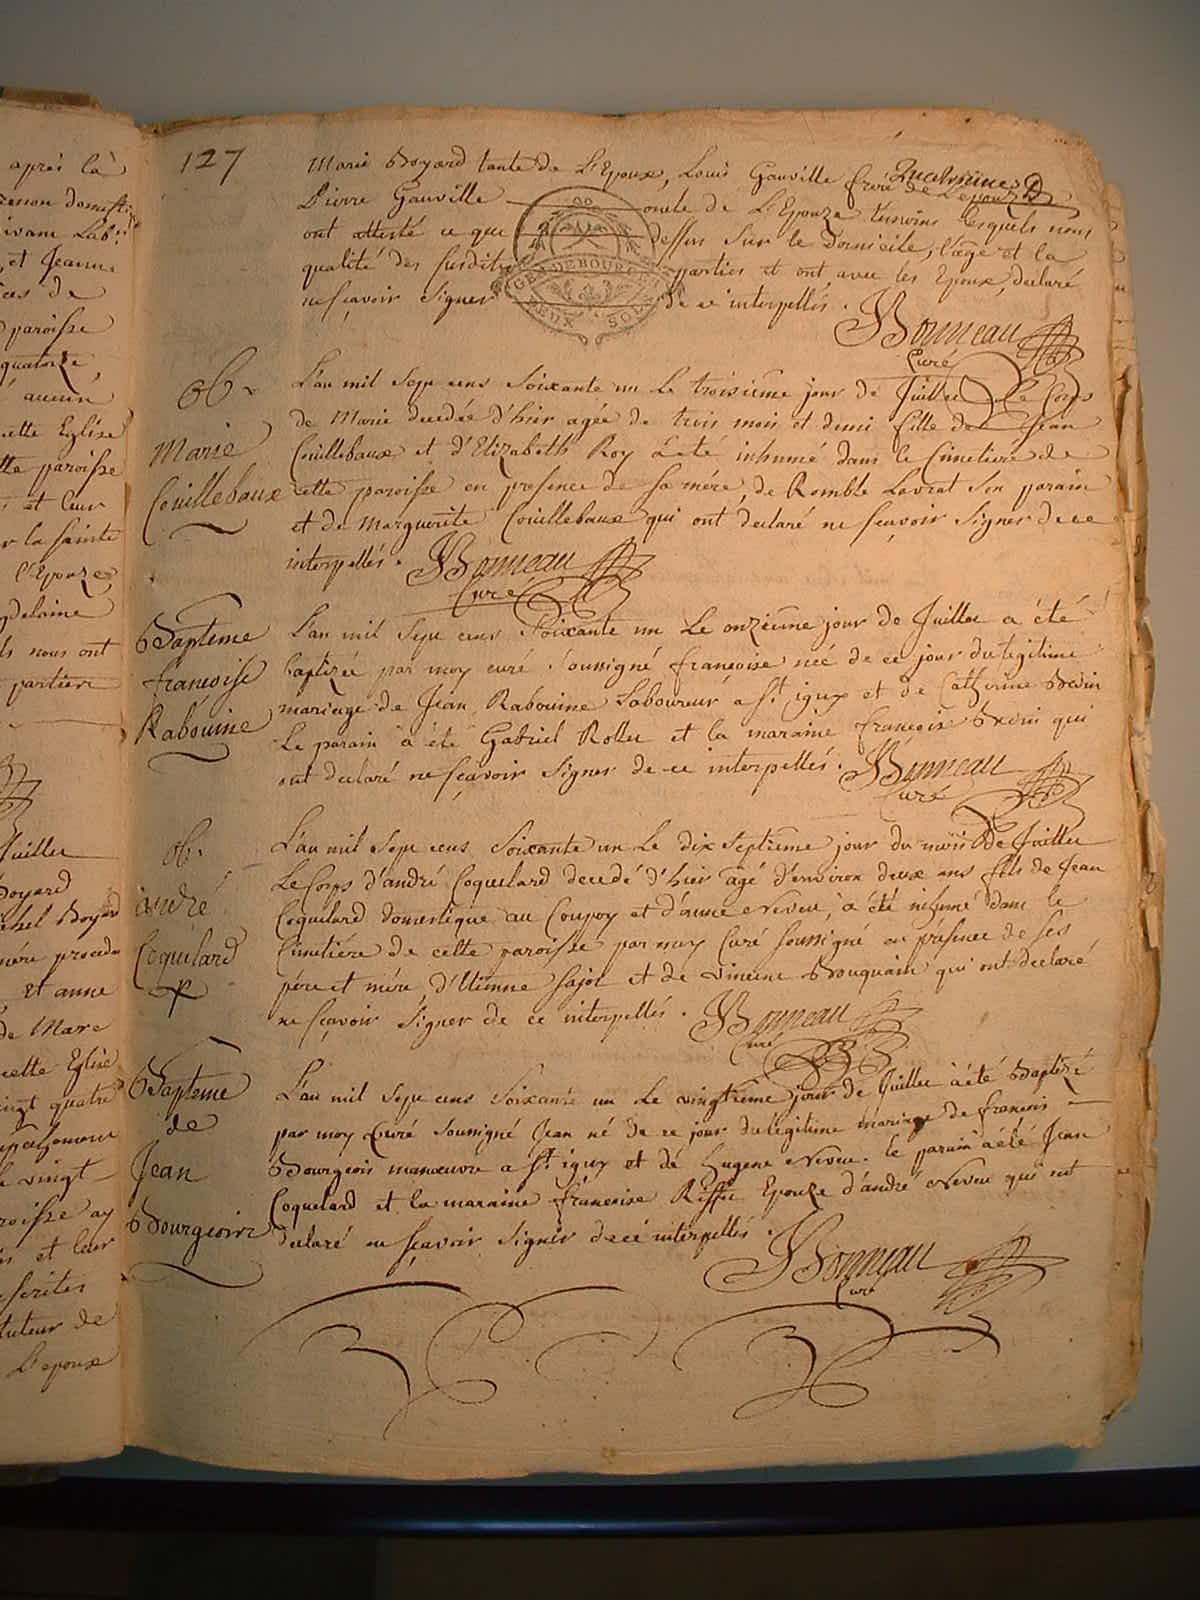 127
quatorziême
Marie Boyard tante de L'Epoux, Louis Gauville frere de L'epouze
Pierre Gauville oncle de L'Epouze temoins lesquels nous
ont attesté ce que dessus sur le domicile, l'age et la
qualité des susdites parties et ont, avec les Epoux, declaré
ne sçavoir signer de ce interpellés.
GEN. DE BOURGES
DEUX SOLS
JBonneau
Curé
ob.
Marie
Couillebaux
L'an mil sept cens soixante un Le troisiême jour de Juillet Le Corps
de Marie decedée d'hier agée de trois mois et demi fille de Jean
Couillebaux et d'Elizabeth Roy a été inhumé dans le Cimetiere de
cette paroisse en presence de sa mére, de Romble Lavrat son parain
et de Marguerite Couillebaux qui ont declaré ne sçavoir signer de ce
interpellés. JBonneau
Curé
Bapteme
francoise
Rabouine
L'an mil sept cens soixante un Le onziême jour de Juillet a été
baptizée par moy curé soussigné françoise neé de ce jour du legitime
mariage de Jean Rabouine Laboureur a St. igux et de Catherine Bedin
Le parain a été Gabriel Rollet et la maraine françoise Bedin qui
ont declaré ne sçavoir signer de ce interpellés. JBonneau
Curé
ob.
andré
Coquilard
L'an mil sept cens soixante un Le dix septieme jour du mois de Juillet
Le Corps d'andré Coquilard decedé d'hier agé d'environ deux ans fils de Jean
Coquilard domestique au Coupoy et d'anne Neveu, a été inhumé dans le
Cimetiére de cette paroisse par moy Curé soussigné en présence de ses
pére et mére, d'Etienne Sajot et de Vincent Bouquain qui ont declaré
ne sçavoir signer de ce interpellés. JBonneau
Curé
Bapteme
de
Jean
Bourgeois
L'an mil sept cens soixante un Le vingtiême jour de Juillet a été Baptizé
par moy Curé soussigné Jean né de ce jour du legitime mariage de francois
Bourgeois manœuvre a St. igux et de Eugene Neveu. le parain a été Jean
Coquelard et la maraine françoise Riffet Epouze d'andré Neveu qui ont
declaré ne sçavoir signer de ce interpellés.
JBonneau
Curé